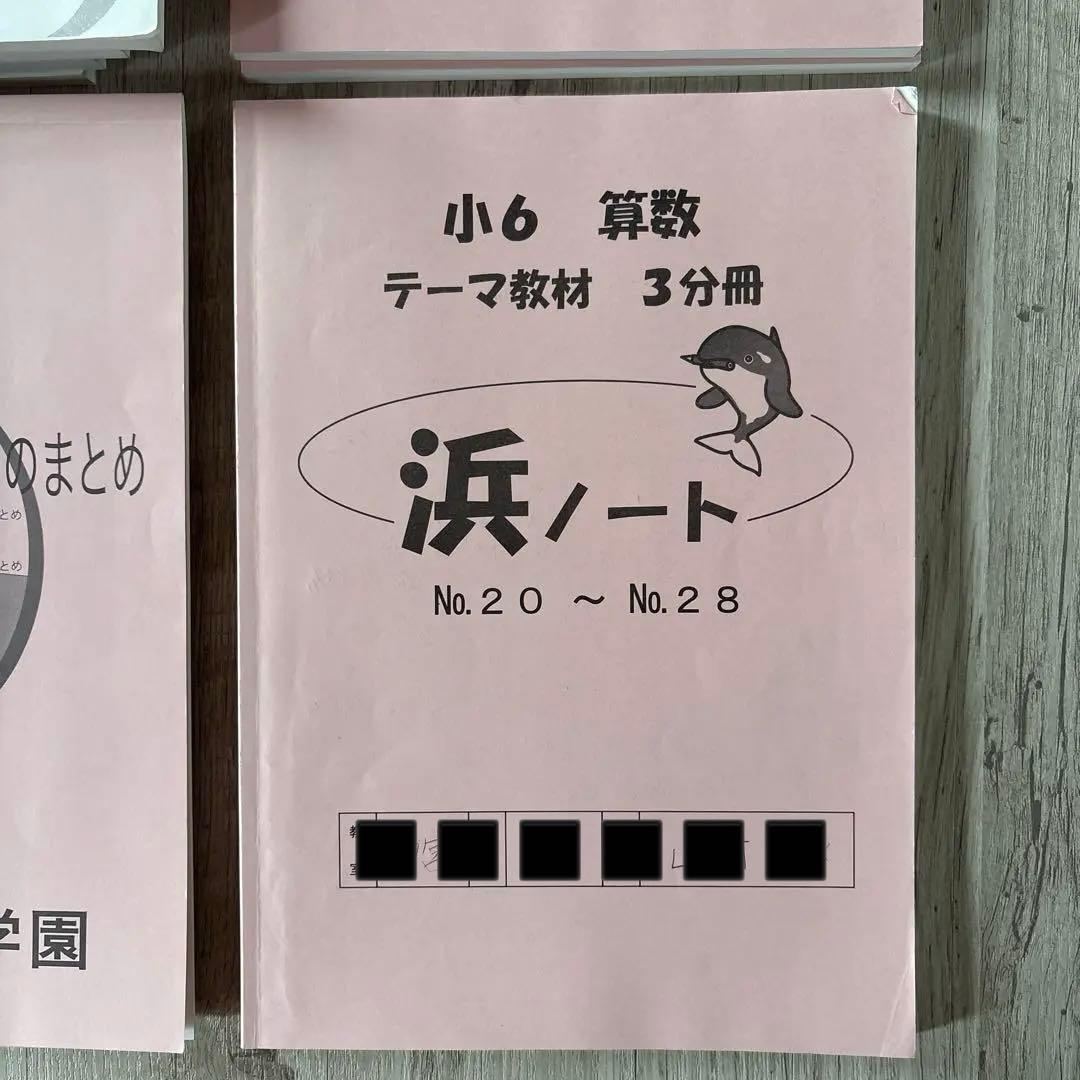 小6 算数
テーマ教材 3分冊
浜ノート
№.20 ～ №.28
のまとめ
とめ
とめ
学園